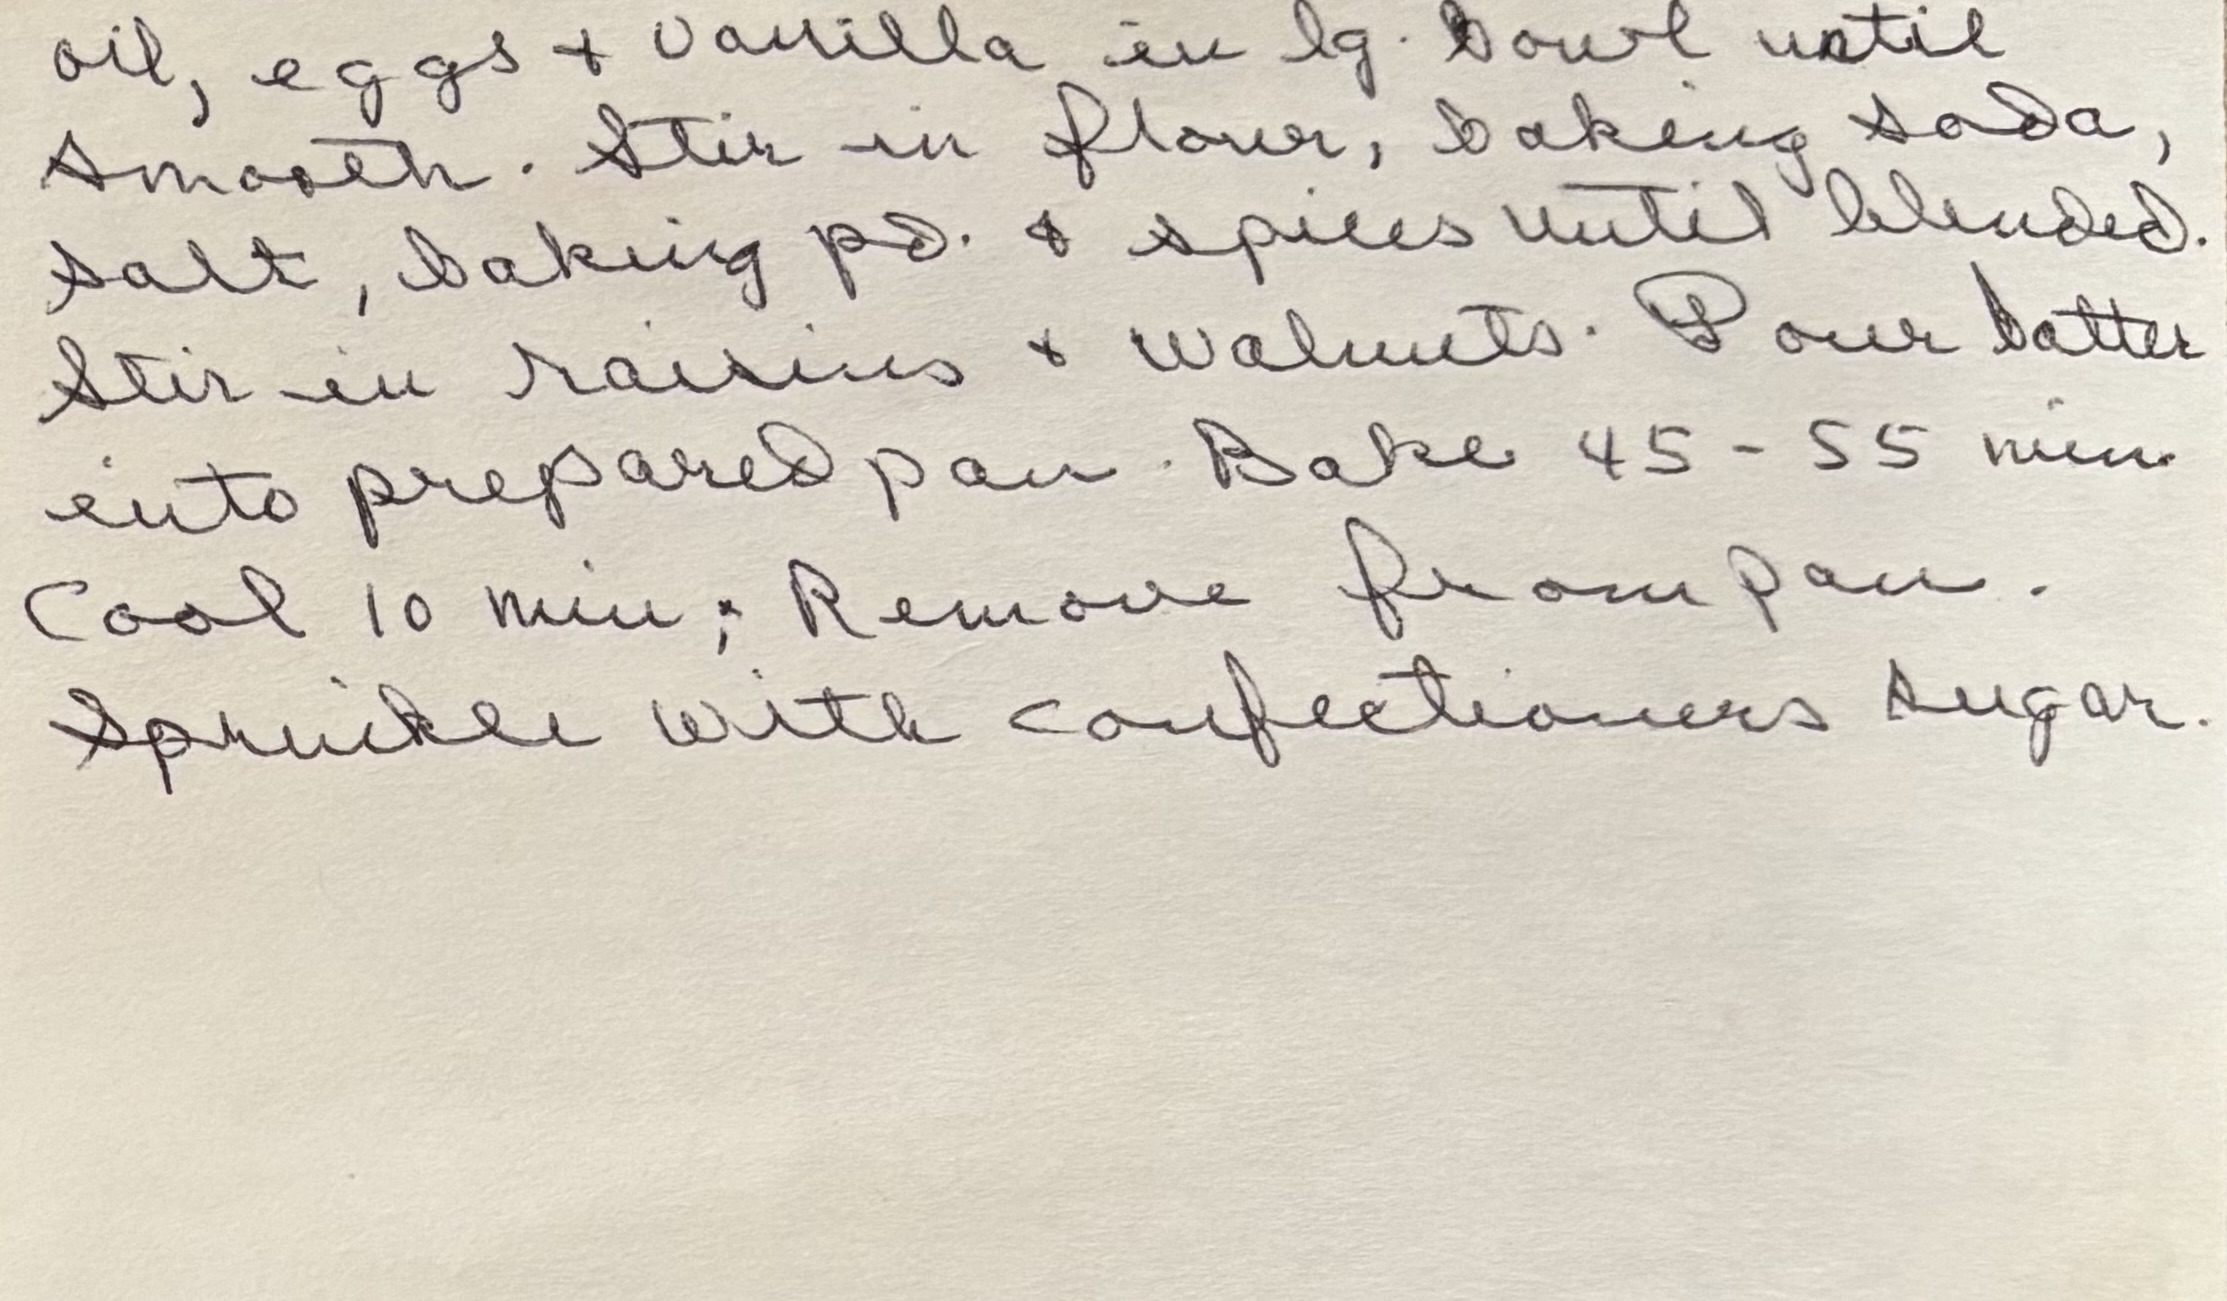 oil, eggs + vanilla in lg. bowl until
smooth. Stir in flour, baking soda,
salt, baking pd. & spices until blended.
Stir in raisins & walnuts. Pour batter
into prepared pan. Bake 45 - 55 min.
Cool 10 min; Remove from pan.
Sprinkle with confectioners sugar.